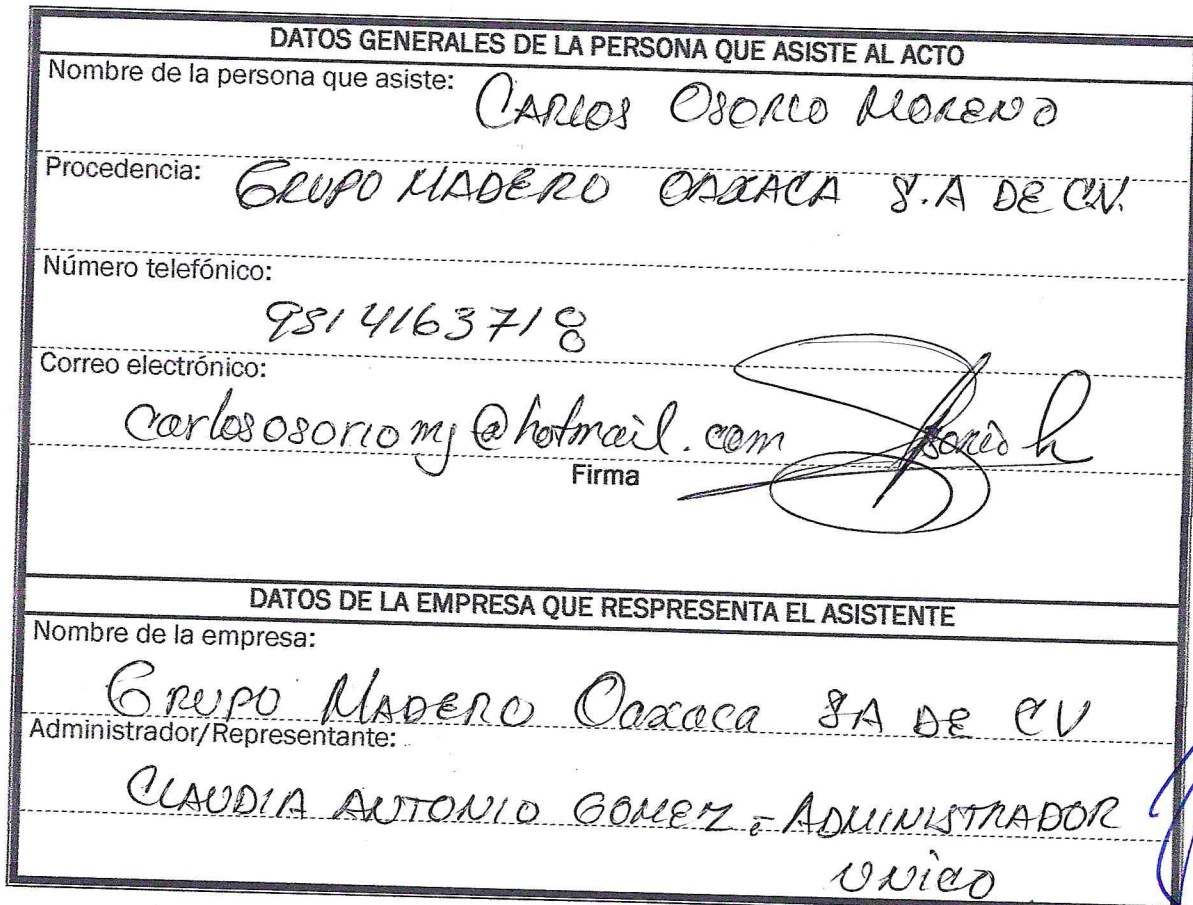 DATOS GENERALES DE LA PERSONA QUE ASISTE AL ACTO
Nombre de la persona que asiste: CARLOS OSORIO MORENO
Procedencia: GRUPO MADERO OAXACA S.A DE CV.
Número telefónico:
9814163718
Correo electrónico:
carlososoriomj@hotmail.com
Firma
DATOS DE LA EMPRESA QUE RESPRESENTA EL ASISTENTE
Nombre de la empresa:
GRUPO MADERO Oaxaca SA DE CV
Administrador/Representante:
CLAUDIA ANTONIO GOMEZ - ADMINISTRADOR
UNICO